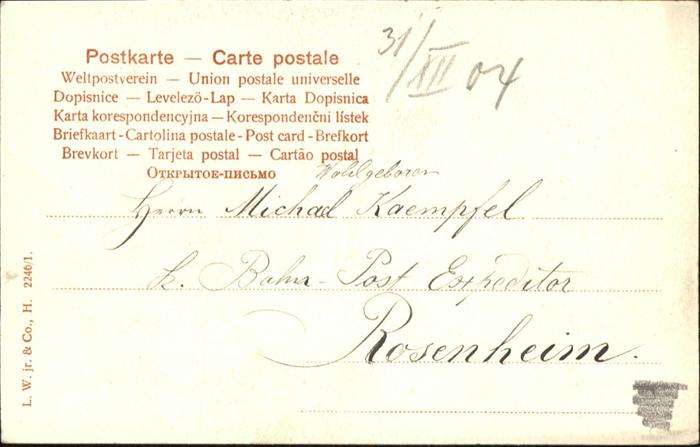 Postkarte — Carte postale
Weltpostverein — Union postale universelle
Dopisnice — Levelező-Lap — Karta Dopisnica
Karta korespondencyjna — Korespondenčni listek
Briefkaart - Cartolina postale - Post card - Brefkort
Brevkort — Tarjeta postal — Cartão postal
Открытое-письмо
31/XII 04
Wohlgeboren
Herrn Michael Kaempfel
k. Bahn-Post Expeditor
Rosenheim.
L. W. jr. & Co., H. 2246/1.